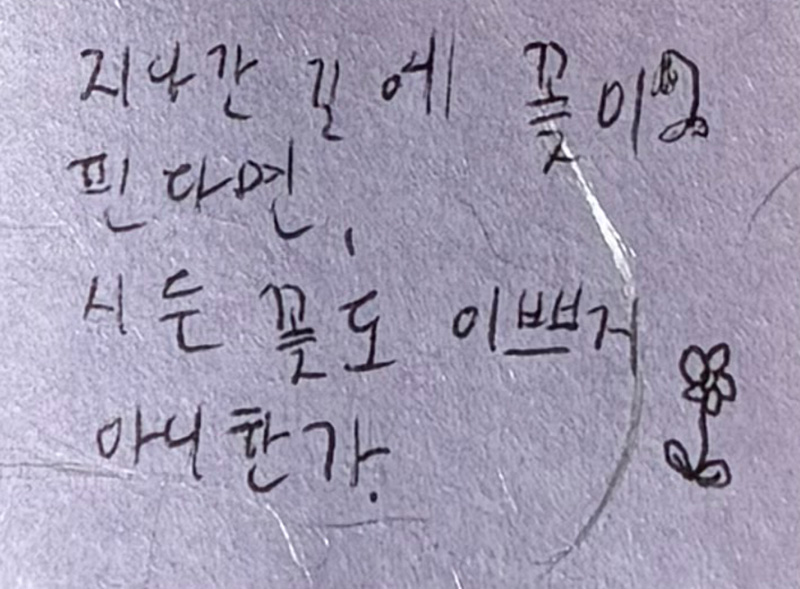 지나간 길에 꽃이
핀다면,
시든 꽃도 이쁘지
아니한가.